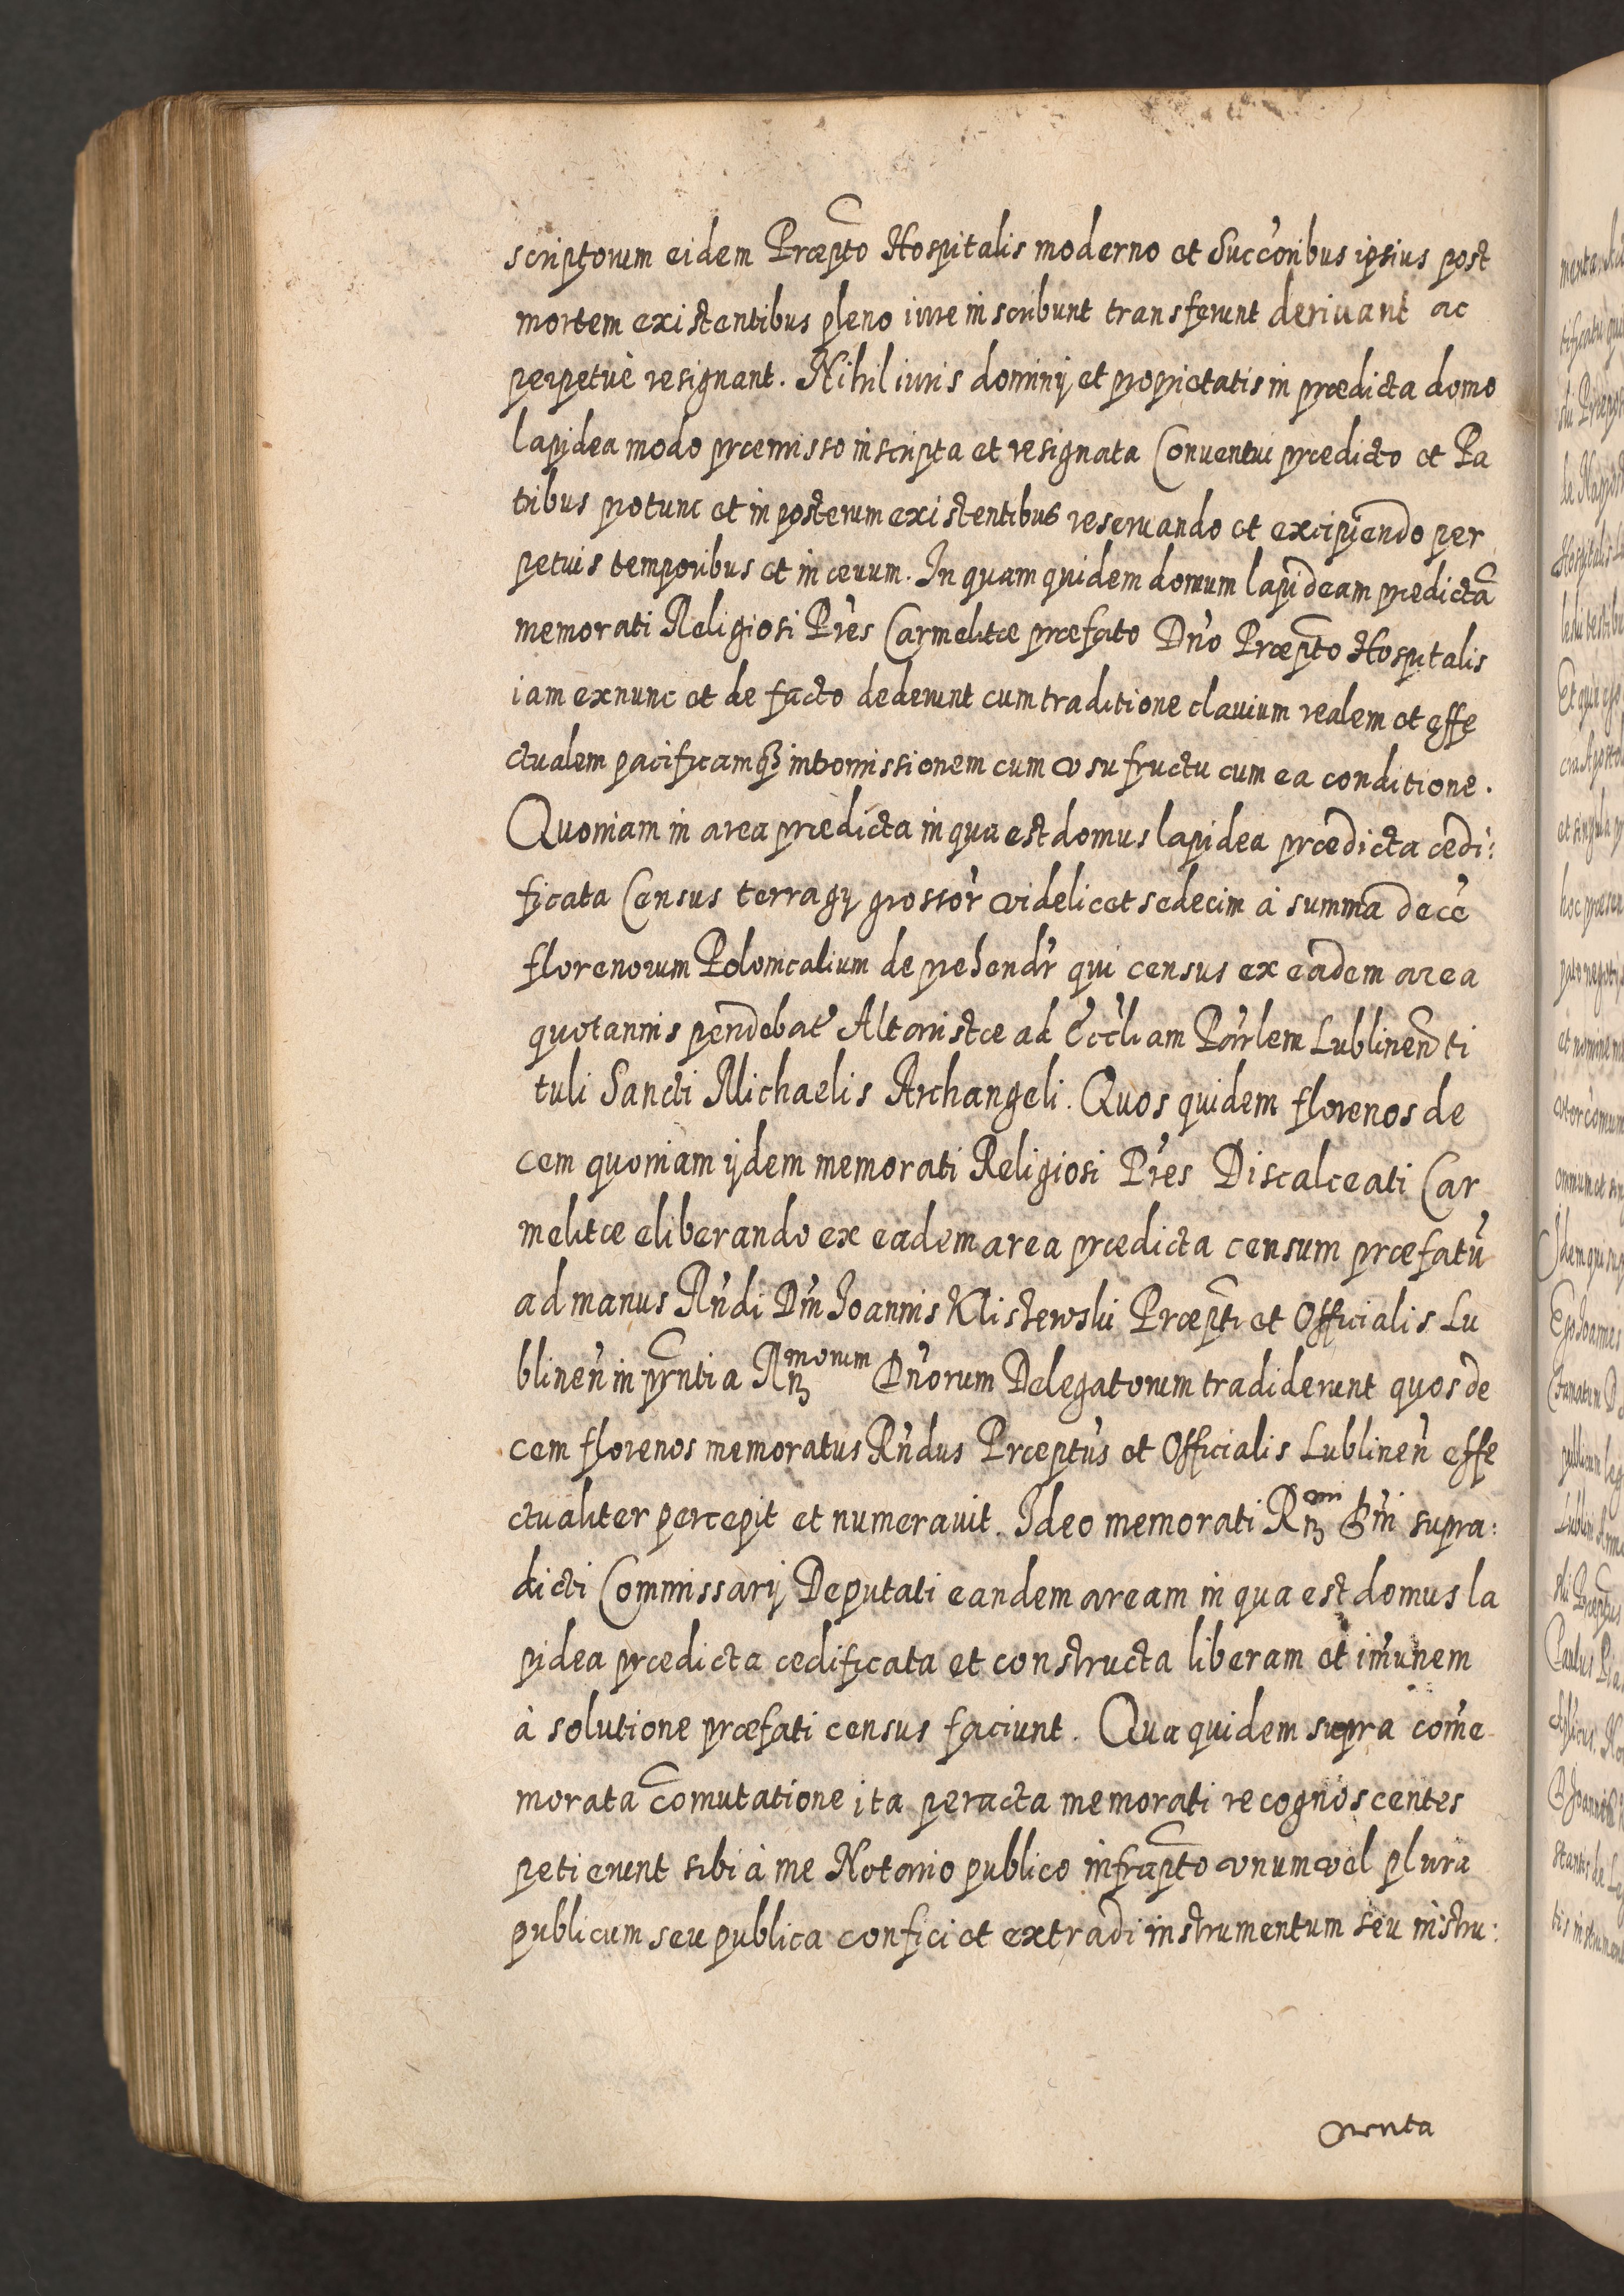 scriptorum eidem Præpto Hospitalis moderno et Succ'oribus ipsius post
mortem existentibus pleno iure inscribunt transferunt deriuant ac
perpetuè resignant. Nihil iuris dominij et proprietatis in prædicta domo
lapidea modo præmisso inscripta et resignata Conuentui prædicto et Pa
tribus protunc et in posterum existentibus reseruando et excipiendo per
petuis temporibus et in æuum. In quam quidem domum lapideam prædictã
memorati Religiosi Pr'es Carmelitæ præfato Dn'o Præpto Hospitalis
iam exnunc et de facto dederunt cum traditione clauium realem et effe
ctualem pacificamq3 intromissionem cum vsufructu cum ea conditione.
Quoniam in area prædicta in qua est domus lapidea prædicta ædi:
ficata Census terragij grossor' videlicet sedecim à summa decẽ
florenorum Polonicalium deprehend'r qui census ex eadem area
quotannis pendebat' Altaristæ ad Eccl'iam Par'lem Lublinen' ti
tuli Sancti Michaelis Archangeli. Quos quidem florenos de
cem quoniam ijdem memorati Religiosi Pr'es Discalceati Car
melitæ eliberando ex eadem area prædicta censum præfatũ
ad manus Rn'di Dn'i Joannis Klishewski Præpti et Officialis Lu
blinen' in pr'ntia Rn̄morum Dn'orum Delegatorum tradiderunt quos de
cem florenos memoratus Rn'dus Præpt'us et Officialis Lublinen' effe
ctualiter percepit et numerauit. Ideo memorati Rn̄mi Dn'i supra:
dicti Commissarij Deputati eandem aream in qua est domus la
pidea prædicta ædificata et constructa liberam et im'unem
à solutione præfati census faciunt. Qua quidem supra com'e
morata com̃utatione ita peracta memorati recognoscentes
petierunt sibi à me Notario publico infrapto vnum vel plura
publicum seu publica confici et extradi instrumentum seu instru:
menta